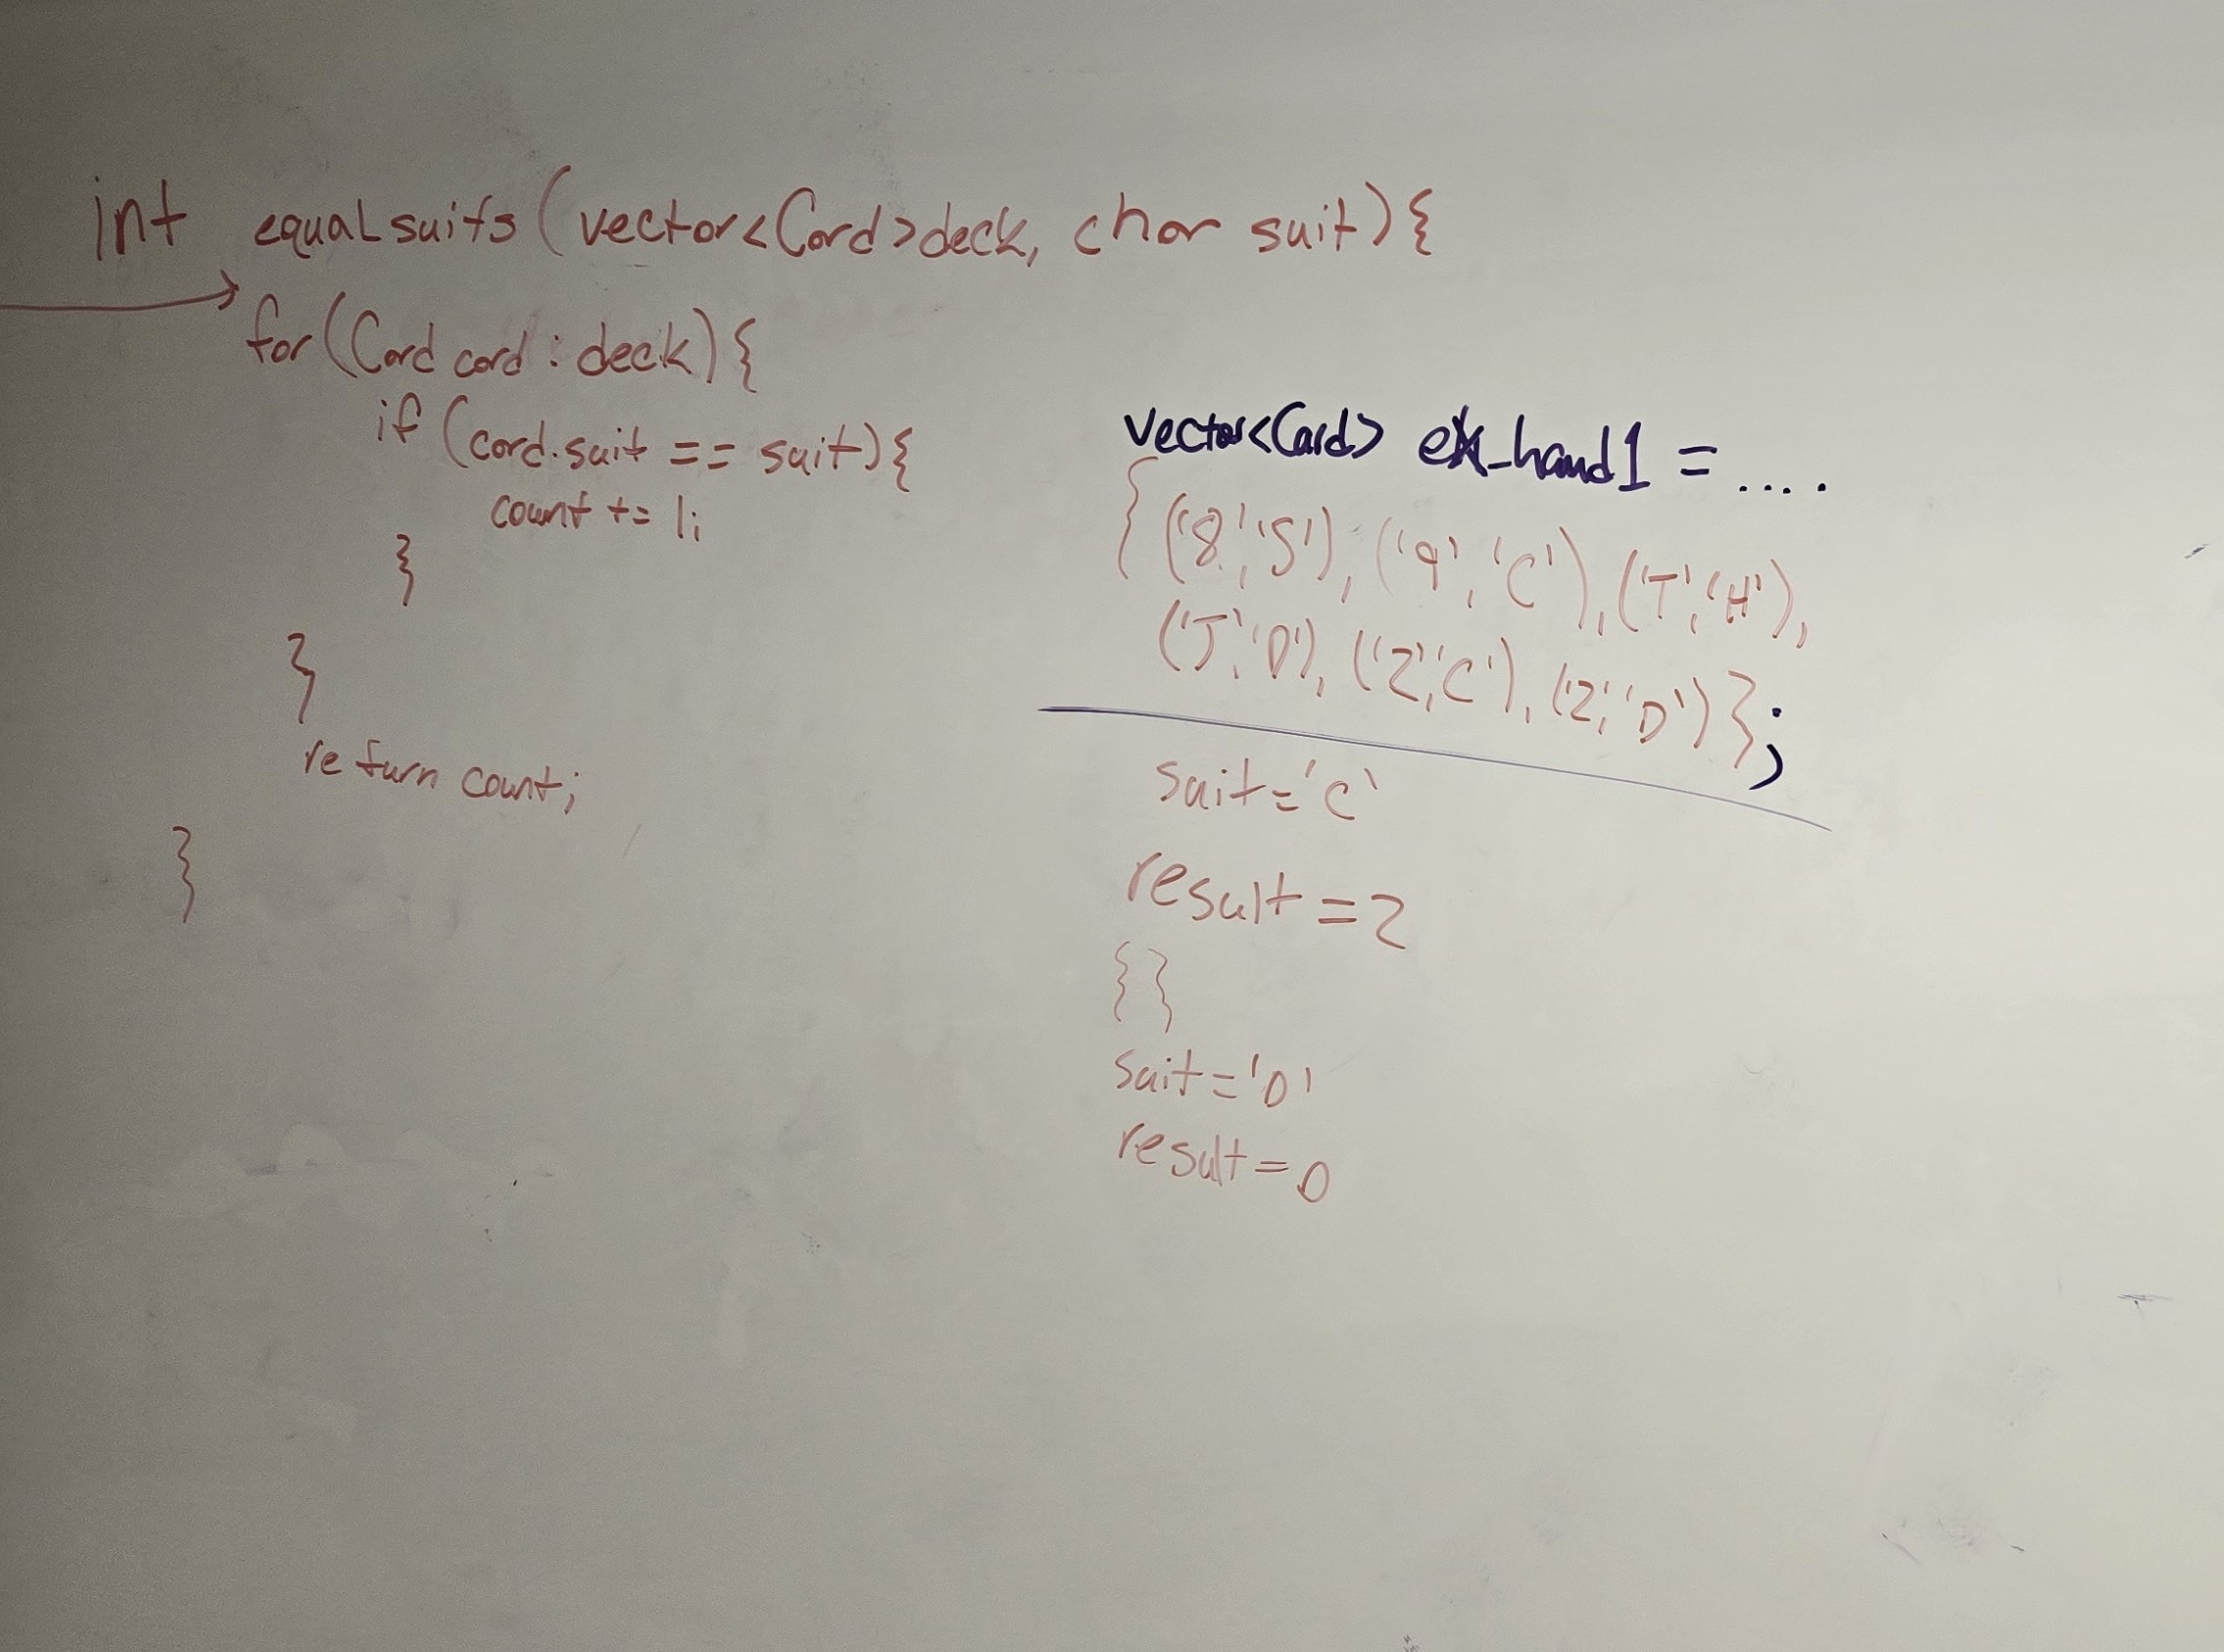 int equalsuits(vector<Card>deck, char suit){
for(Card card : deck){
if (card.suit == suit){
count += 1;
}
}
return count;
}
vector<Card> ex_hand1 = ....
{('8','S'), ('9','C'), ('T','H'),
('J','D'), ('2','C'), ('2','D')};
suit='C'
result=2
{}
suit='D'
result=0